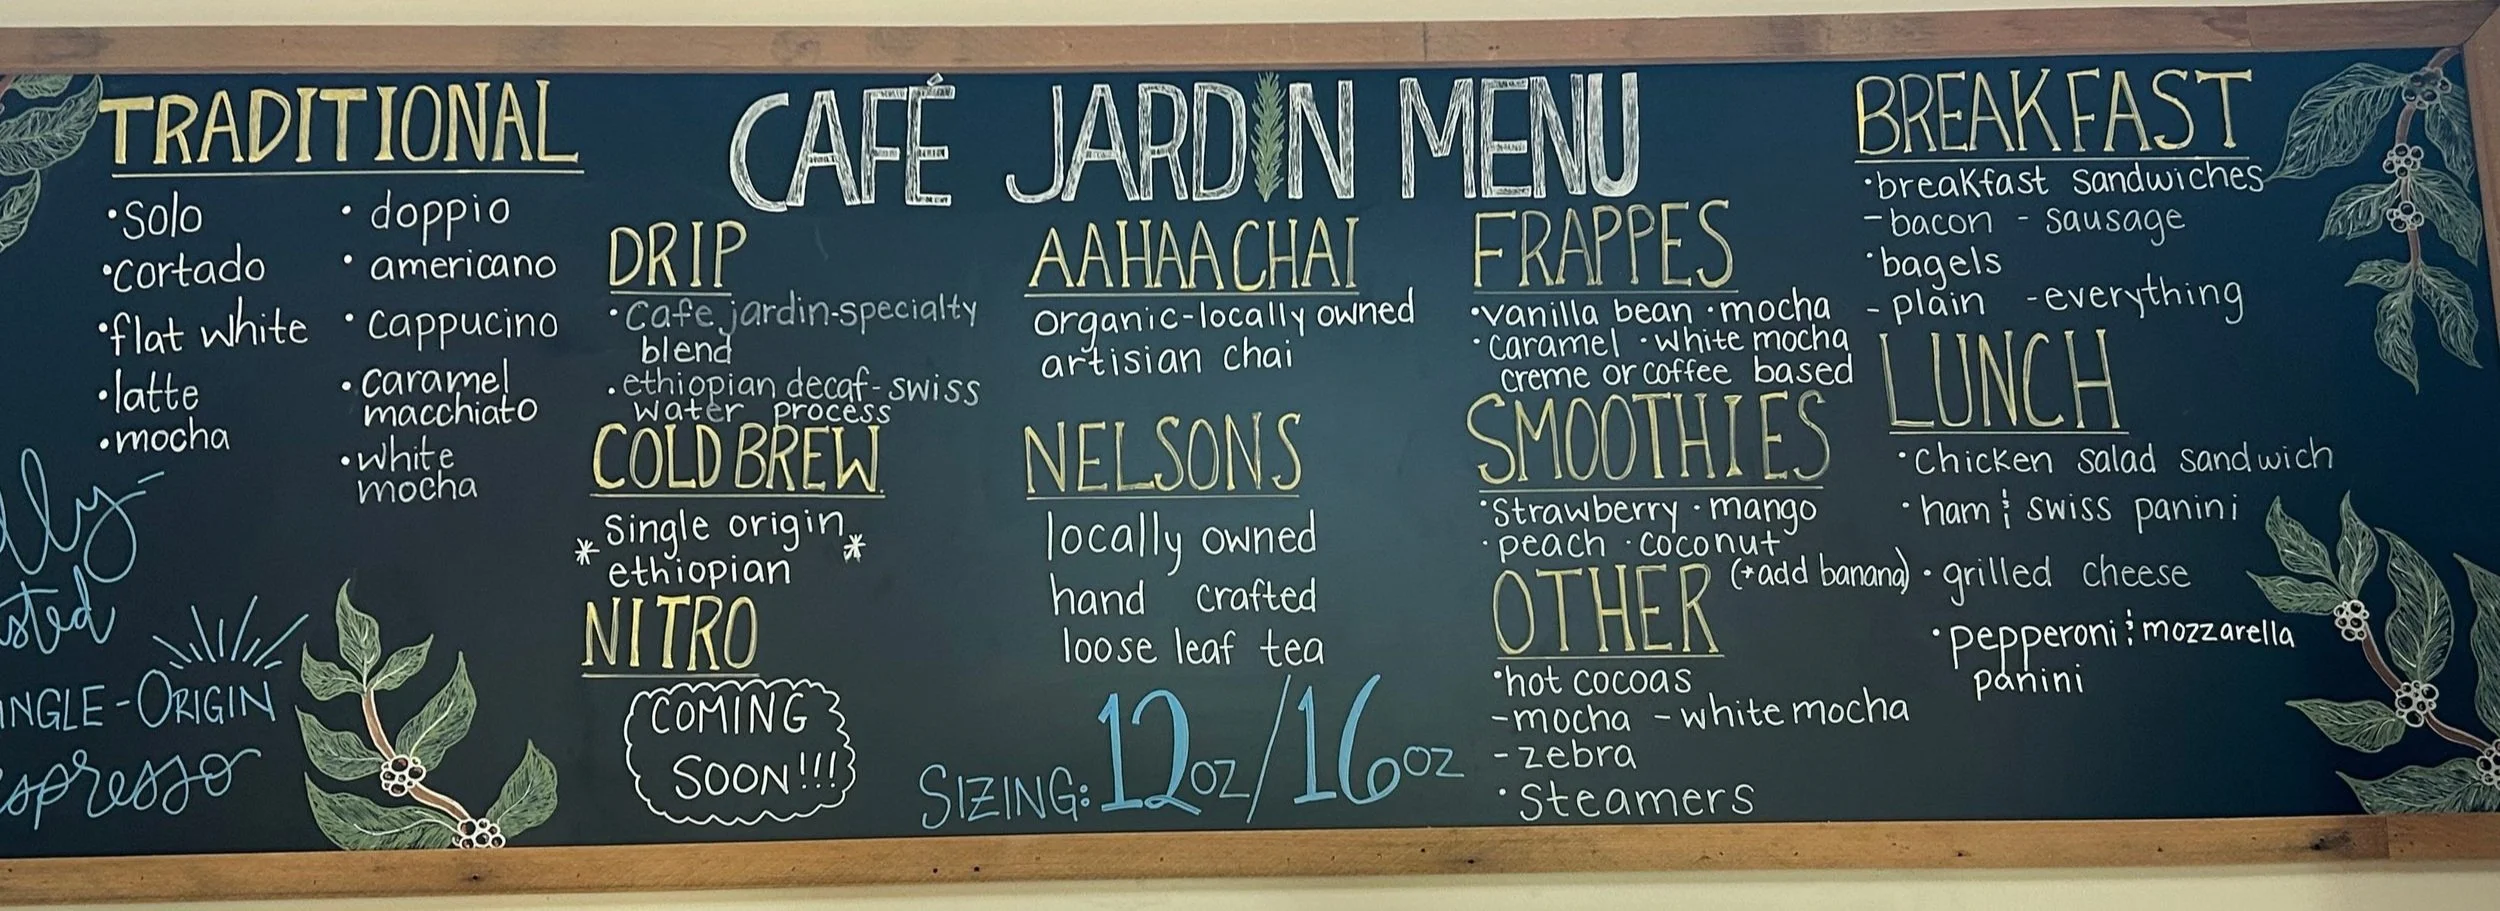 TRADITIONAL
• solo
• cortado
• flat white
• latte
• mocha
• doppio
• americano
• cappucino
• caramel
macchiato
• white
mocha
SINGLE-ORIGIN
espresso
CAFÉ JARDIN MENU
DRIP
• cafe jardin-specialty
blend
• ethiopian decaf-swiss
water process
COLD BREW
* single origin *
ethiopian
NITRO
COMING
SOON!!!
AAHAA CHAI
organic-locally owned
artisian chai
NELSONS
locally owned
hand crafted
loose leaf tea
SIZING: 12oz/16oz
FRAPPES
• vanilla bean • mocha
• caramel • white mocha
creme or coffee based
SMOOTHIES
• strawberry • mango
• peach • coconut
(+add banana)
OTHER
• hot cocoas
- mocha - white mocha
- zebra
• steamers
BREAKFAST
• breakfast sandwiches
- bacon - sausage
• bagels
- plain - everything
LUNCH
• chicken salad sandwich
• ham & swiss panini
• grilled cheese
• pepperoni & mozzarella
panini